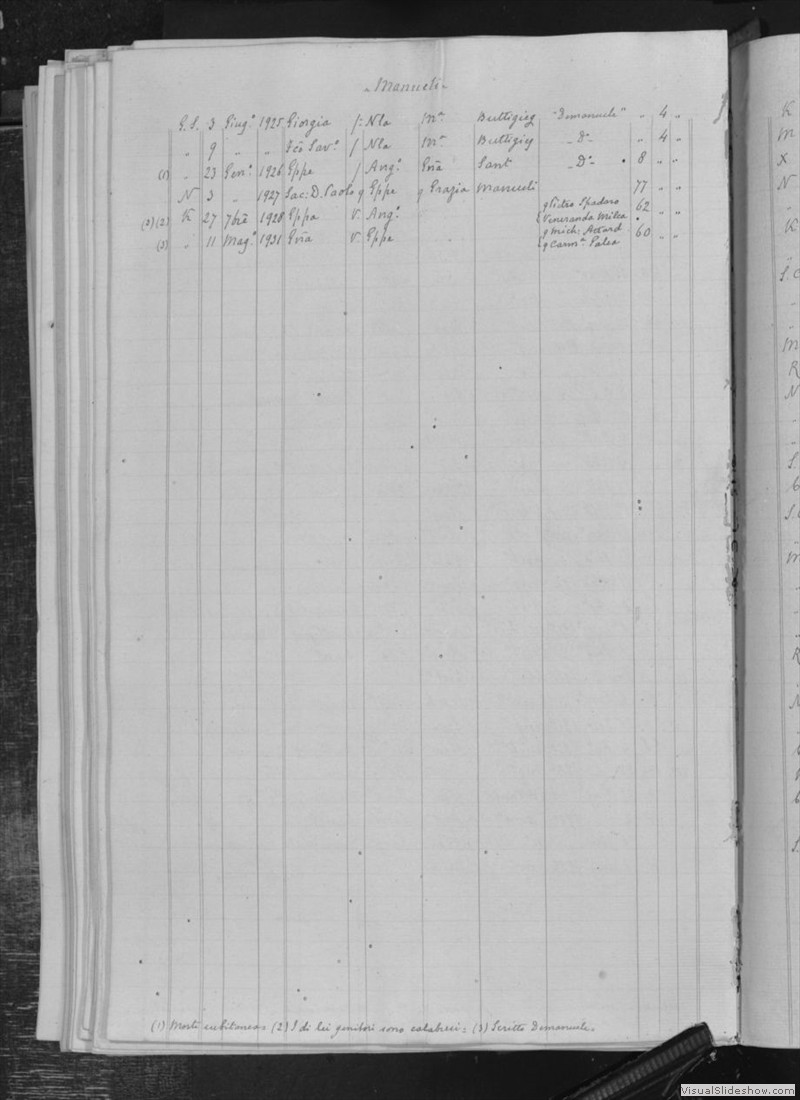 - Manueli -
G.S. 3 Giug.º 1925 Giorgia f: Nla Mª Buttigieg "Demanuele" " 4 "
" 9 " " Fcõ Sav.º f Nla Mª Buttigieg - Dº - " 4 "
(1) " 23 Gen.º 1926 Gppe f Ang.º Gña Sant - Dº - 8 " "
N 3 " 1927 Sac: D. Paolo q Gppe q Grazia Manueli 77 " "
(3)(2) K 27 7bre 1928 Gppa V. Ang.º q Pietro Spadaro 62 " "
Veneranda Milea
(3) " 11 Mag.º 1931 Gña V. Gppe q Mich: Attard 60 " "
q Carmª
K
M
X
N
K
"
S.C
"
"
"
M
R
N
"
"
S.
S.C
"
M
"
"
"
R
"
N
(1) Morte subitanea (2) I di lei genitori sono calabresi = (3) Scritto Demanuele.
VisualSlideshow.com